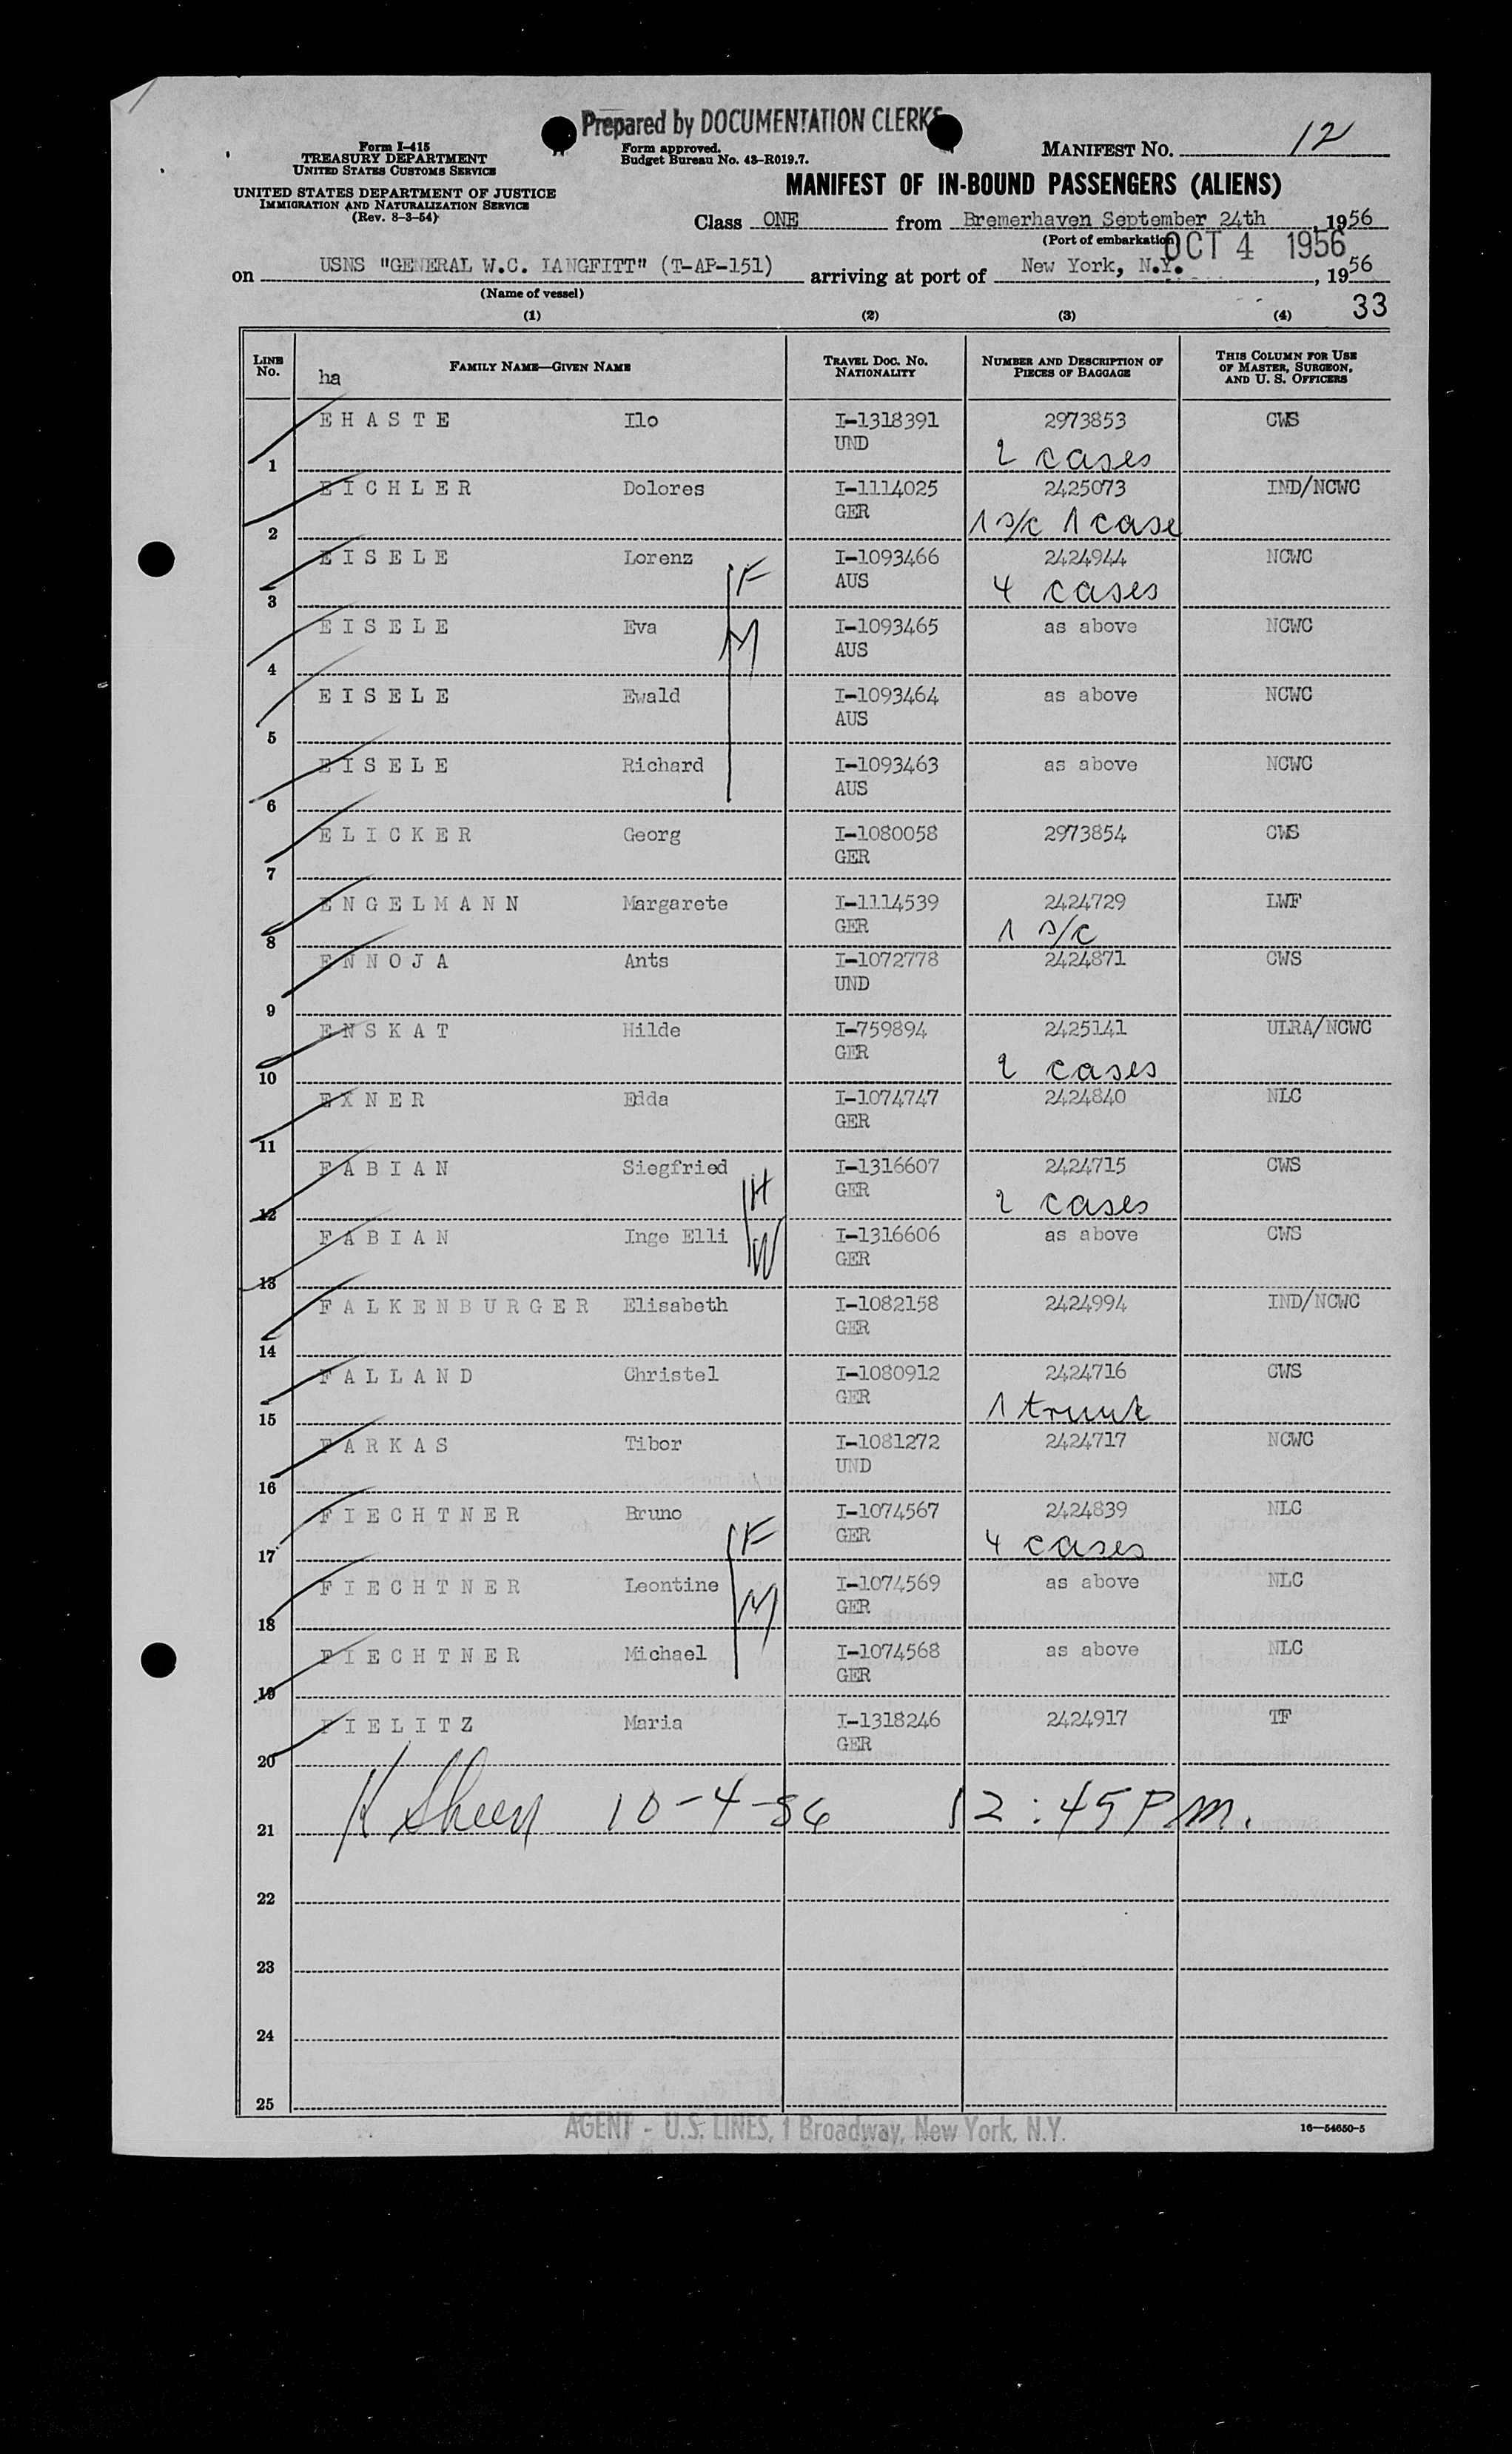 Prepared by DOCUMENTATION CLERKS
Form I-415
TREASURY DEPARTMENT
UNITED STATES CUSTOMS SERVICE
UNITED STATES DEPARTMENT OF JUSTICE
IMMIGRATION AND NATURALIZATION SERVICE
(Rev. 8-3-54)
Form approved.
Budget Bureau No. 43-R019.7.
MANIFEST NO. 12
MANIFEST OF IN-BOUND PASSENGERS (ALIENS)
Class ONE from Bremerhaven September 24th, 1956
(Port of embarkation)
OCT 4 1956
on USNS "GENERAL W.C. LANGFITT" (T-AP-151) arriving at port of New York, N.Y., 1956
(Name of vessel)
33
(1) (2) (3) (4)
LINE NO. FAMILY NAME—GIVEN NAME TRAVEL DOC. NO. NATIONALITY NUMBER AND DESCRIPTION OF PIECES OF BAGGAGE THIS COLUMN FOR USE OF MASTER, SURGEON, AND U. S. OFFICERS
ha
EHASTE Ilo I-1318391 2973853 CWS
1 UND 2 cases
EICHLER Dolores I-1114025 2425073 IND/NCWC
2 GER 1 s/c 1 case
EISELE Lorenz F I-1093466 2424944 NCWC
3 AUS 4 cases
EISELE Eva M I-1093465 as above NCWC
4 AUS
EISELE Ewald I-1093464 as above NCWC
5 AUS
EISELE Richard I-1093463 as above NCWC
6 AUS
ELICKER Georg I-1080058 2973854 CWS
7 GER
ENGELMANN Margarete I-1114539 2424729 LWF
8 GER 1 s/c
ENNOJA Ants I-1072778 2424871 CWS
9 UND
ENSKAT Hilde I-759894 2425141 ULRA/NCWC
10 GER 2 cases
EXNER Edda I-1074747 2424840 NLC
11 GER
FABIAN Siegfried H I-1316607 2424715 CWS
12 GER 2 cases
FABIAN Inge Elli W I-1316606 as above CWS
13 GER
FALKENBURGER Elisabeth I-1082158 2424994 IND/NCWC
14 GER
FALLAND Christel I-1080912 2424716 CWS
15 GER 1 trunk
FARKAS Tibor I-1081272 2424717 NCWC
16 UND
FIECHTNER Bruno F I-1074567 2424839 NLC
17 GER 4 cases
FIECHTNER Leontine M I-1074569 as above NLC
18 GER
FIECHTNER Michael I-1074568 as above NLC
19 GER
FIELITZ Maria I-1318246 2424917 TF
20 GER
21 10-4-56 12:45 P.m.
22
23
24
25
AGENT - U.S. LINES, 1 Broadway, New York, N.Y.
16—54650-5